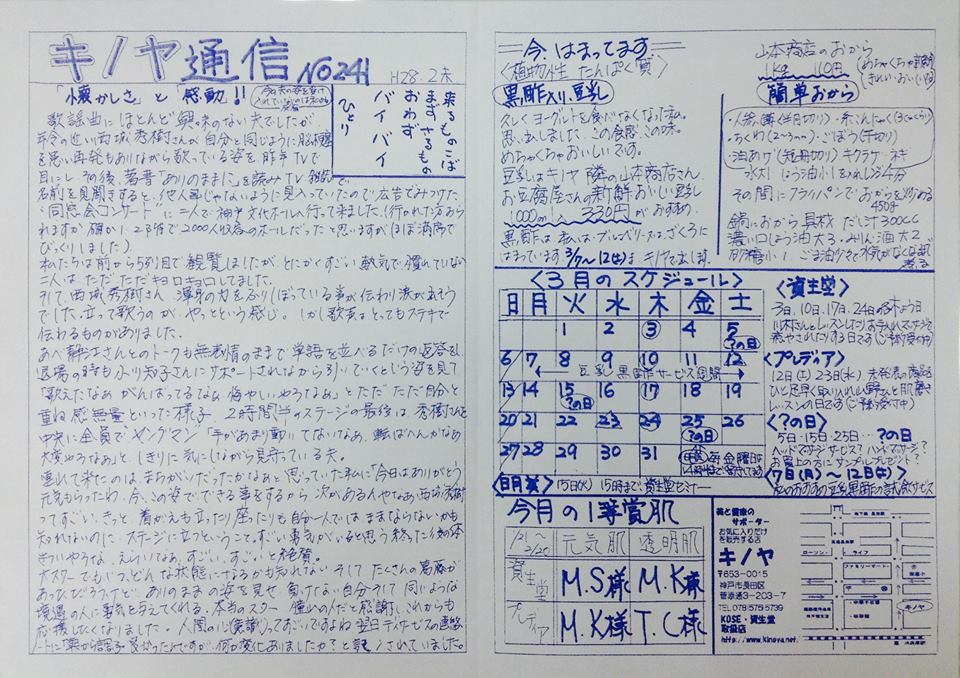 キノヤ通信 No241 H28.2末
「懐かしさ」と「感動」!!
来るものこばまず さるものおわず バイバイ ひとり
歌謡曲にほとんど興味のない夫でしたが
年令の近い西城秀樹さんが自分と同じように脳梗塞
を患い再発もありながら歌っている姿を昨年TVで
目にし その後、著書「ありのままに」を読み
名前を見聞きすると、他人事じゃないように見入っていたので広告でみつけた
「同窓会コンサート」に二人で神戸文化ホールへ行って来ました。(行かれた方おら
れますか 確か1・2階で2000人収容のホールだったと思いますがほぼ満席で
びっくりしました)
私たちは前から5列目で観覧しましたが、とにかくすごい熱気で慣れていない
二人は ただただキョロキョロしてました。
そして、西城秀樹さん 渾身の力をふりしぼっている事が伝わり涙があふれそう
でした。立って歌うのが、やっとという感じ。しかし歌声はとってもステキで
伝わるものがありました。
あべ静江さんとのトークも無表情のままで単語を並べるだけの返答をし
退場の時も小川知子さんにサポートされながら引いていくという姿を見て
「歌えたなぁ がんばってるなぁ 悔やしいやろなぁ」とただただ自分と
重ね感無量といった様子。2時間半のステージの最後は、秀樹さんを
中央に全員でヤングマン「手があまり動いてないなぁ、転ばへんかなぁ
大変やろなぁ」と、しきりに気にしながら見守っている夫。
連れて来たのは、まちがいだったかなぁと思っていた私に「今日はありがとう
元気もらったわ、今、この姿でできる事をするから、次があるんやなぁ。西城秀樹
ってすごい。きっと、着がえも立ったり座ったりも自分一人ではままならないかも
知れないのに、ステージに立つということ、すごい勇気がいると思う終った後の体
きついやろな、えらいなぁ。すごい、すごい」と絶賛。
あったでしょうけど、ありのままの姿を見せ 負けない自分 そして 同じような
境遇の人に勇気を与えてくれる。本当のスター 憧れの人だと感謝し、これからも
応援したくなりました。人間の心(意識)ってすごいですよね 翌日デイサービスの連絡
何か変化ありましたか?と記入されていました。
今、はまってます
〈植物性 たんぱく質〉
黒酢入り、豆乳
久しくヨーグルトを食べなくなった私。
思い出しました。この食感、この味。
めちゃくちゃおいしいです。
豆乳はキノヤ隣の山本商店さん
お豆腐屋さんの新鮮おいしい豆乳
1000ml 330円がおすすめ。
黒酢は、私は、ブルーベリー 又は、ざくろに
はまっています。3/7~12(土)は キノヤで出します。
山本商店のおから
1kg 110円
簡単おから
・人参1/2(半月切り)・糸こんにゃく
・ちくわ(2~3mm)・ごぼう(千切り)
・油あげ(短冊切り)キクラゲ・ネギ
その間にフライパンでおからを炒める
450g
鍋におから 具材 だし汁300CC
濃い口しょう油大3、みりん・酒 大2
砂糖小1、ごま油
〈3月のスケジュール〉
日 月 火 水 木 金 土
1 2 ③ 4 5 ?の日
6 7 8 9 10 11 12
← 豆乳 黒酢サービス週間 →
13 14 15 16 17 18 19
?の日
20 21 22 23 24 25 26
?の日
27 28 29 30 31
毎金曜日は
日月〈休〉 15日(火) 15時まで資生堂セミナー
〈資生堂〉
3日、10日、17日、24日の各木よう日
〈プレディア〉
12日(土)23日(水) 未発表の商品
ひと足早く
〈?の日〉
5日・15日・25日… ?の日
ヘッドマッサージサービス? ハンドマッサージ?
お買上の方に サンプルプレゼント?
〈7日(月)~12日(土)〉
私のおすすめ豆乳黒酢の試飲サービス
今月の1等賞肌
1/21~2/20 元気肌 透明肌
資生堂 M.S様 M.K様
プレディア M.K様 T.C様
美と健康の
サポーター
お気に入りだけ
を販売する店
キノヤ
〒653-0015
神戸市長田区
菅原通3-203-7
TEL 078-575-5739
KOSE・資生堂
取扱店
http://www.kinoya.net/
ローソン
ライフ
ファミリーマート
キノヤ